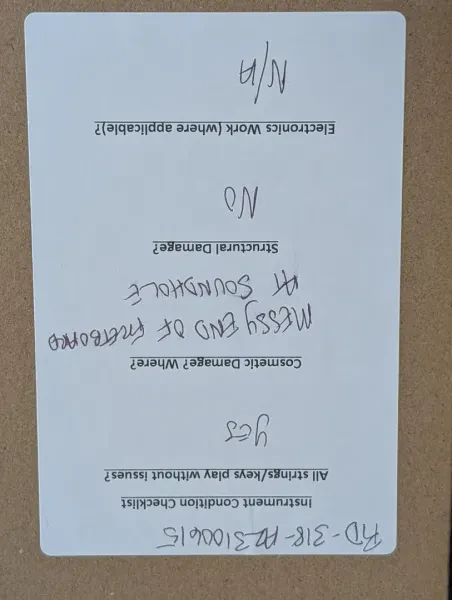 RD-318-AZ3100615
Instrument Condition Checklist
All strings/keys play without issues?
yes
Cosmetic Damage? Where?
MESSY END OF FRETBOARD
AT SOUNDHOLE
Structural Damage?
NO
Electronics Work (where applicable)?
N/A